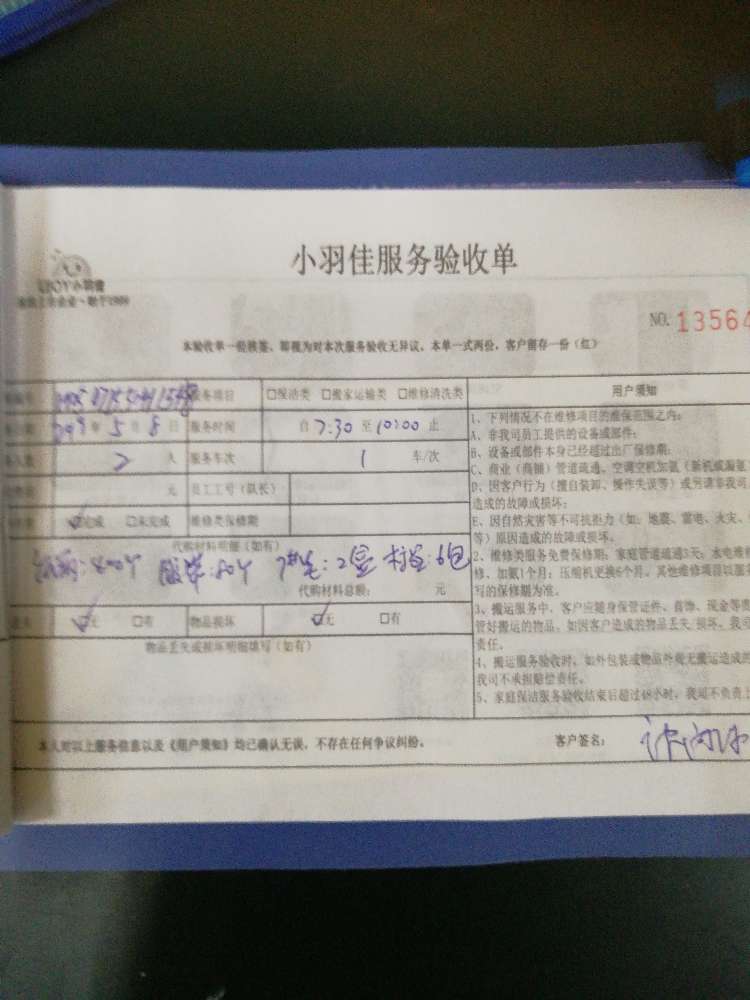 小羽佳服务验收单
NO. 13564
本验收单一经核签，即视为对本次服务验收无异议，本单一式两份，客户留存一份（红）
服务项目 □保洁类 □搬家运输类 □维修清洗类 用户须知
年 5 月 8 日 服务时间 自 7:30 至 10:00 止
2 人 服务车次 1 车/次
元 员工工号（队长）
☑完成 □未完成 维修类保修期
代购材料明细（如有）
代购材料总额： 元
☑无 □有 物品损坏 ☑无 □有
物品丢失或损坏明细填写（如有）
1、下列情况不在维修项目的维保范围之内：
A、非我司员工提供的设备或部件；
B、设备或部件本身已经超过出厂保修期；
C、商业（商铺）管道疏通，空调空机加氟（新机或漏氟
D、因客户行为（擅自装卸、操作失误等）或另请非我司
造成的故障或损坏；
E、因自然灾害等不可抗拒力（如：地震、雷电、火灾、
等）原因造成的故障或损坏。
2、维修类服务免费保修期：家庭管道疏通3天；水电维
修、加氟1个月；压缩机更换6个月。其他维修项目以服务
写的保修期为准。
3、搬运服务中，客户应随身保管证件、首饰、现金等贵
管好搬运的物品，如因客户造成的物品丢失/损坏，我司
责任。
4、搬运服务验收时，如外包装或物品外观无搬运造成的
我司不承担赔偿责任。
5、家庭保洁服务验收结束后超过48小时，我司不负责
本人对以上服务信息以及《用户须知》均已确认无误，不存在任何争议纠纷。 客户签名：